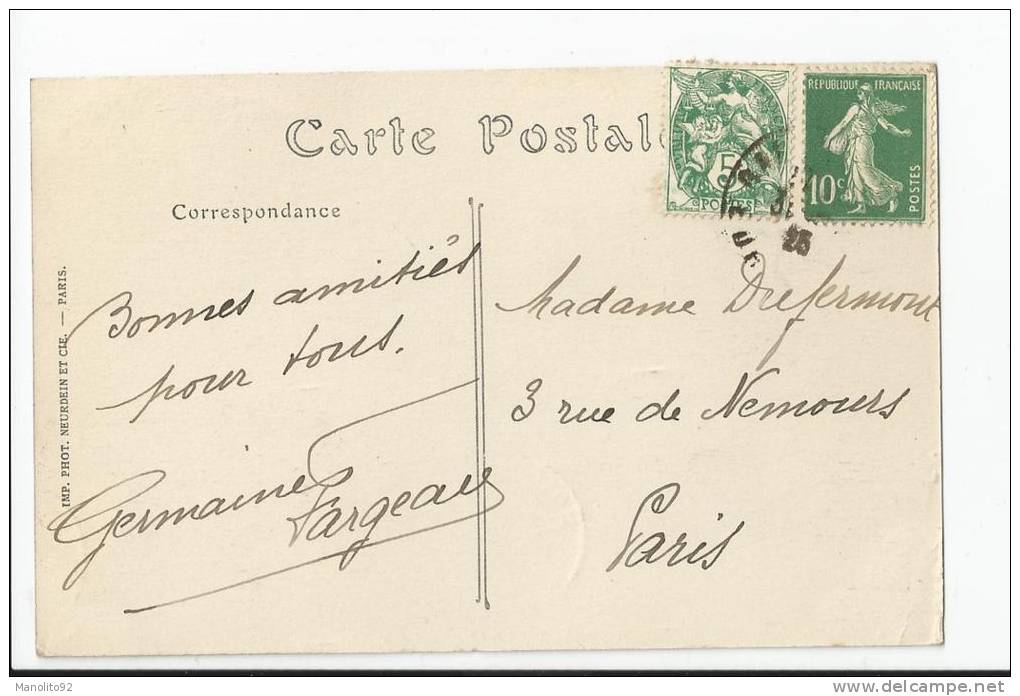 Carte Postale
Correspondance
RÉPUBLIQUE FRANÇAISE
10 c
POSTES
5
POSTES
25
Bonnes amitiés
pour tous.
Germaine Fargeau
Madame Drefermont
3 rue de Nemours
Paris
IMP. PHOT. NEURDEIN ET CIE. — PARIS.
Manolito92
www.delcampe.net